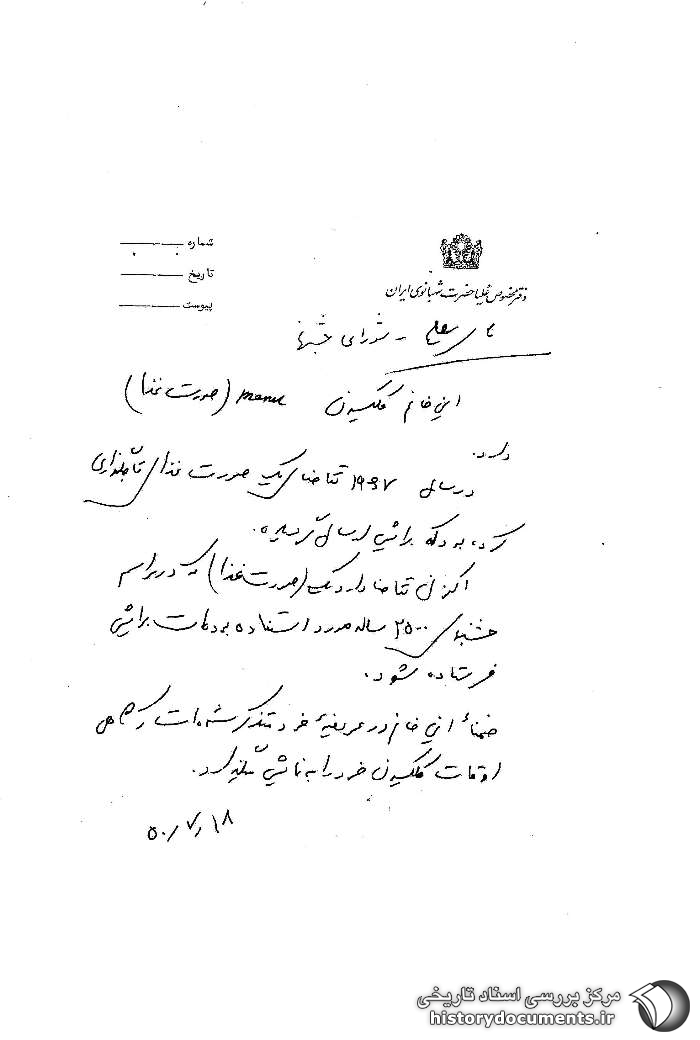 شماره
تاریخ
پیوست
دفتر مخصوص علیاحضرت شهبانوی ایران
شورای جشنها
این خانم کلکسیون menu (صورت غذا)
دارد.
در سال ۱۹۶۷ تقاضای یک صورت غذای تاجگذاری
کرده بود که برایش ارسال گردید.
اکنون تقاضا دارد یک (صورت غذا) که در مراسم
جشنهای ۲۵۰۰ ساله مورد استفاده بوده است برایش
فرستاده شود.
ضمناً این خانم در عریضهٔ خود متذکر شده است که گاهی
اوقات کلکسیون خود را به نمایش میگذارد.
۵۰/۷/۱۸
مرکز بررسی اسناد تاریخی
historydocuments.ir